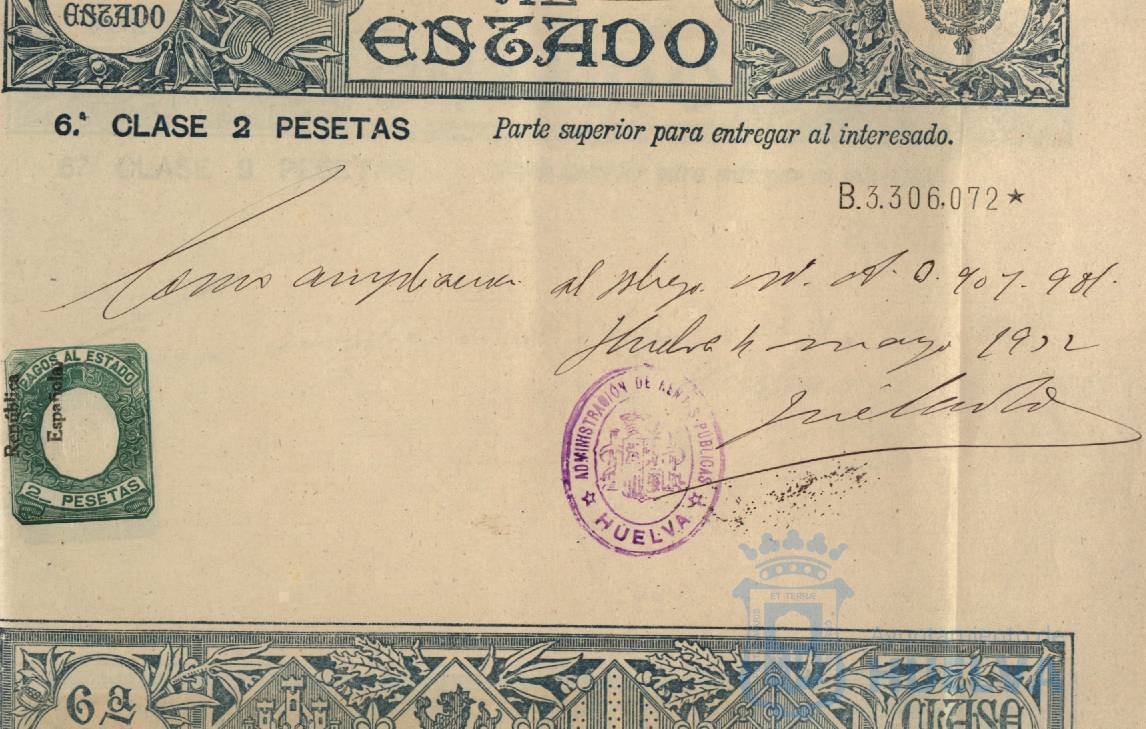 ESTADO
ESTADO
6.ª CLASE 2 PESETAS
Parte superior para entregar al interesado.
B.3.306.072 ★
Como ampliacion al pliego N. A. 0.907.981.
Huelva 4 mayo 1932
PAGOS AL ESTADO
República
Española
2 PESETAS
ADMINISTRACIÓN DE RENTAS PÚBLICAS
HUELVA
ET TERRÆ
6ª
CLASE